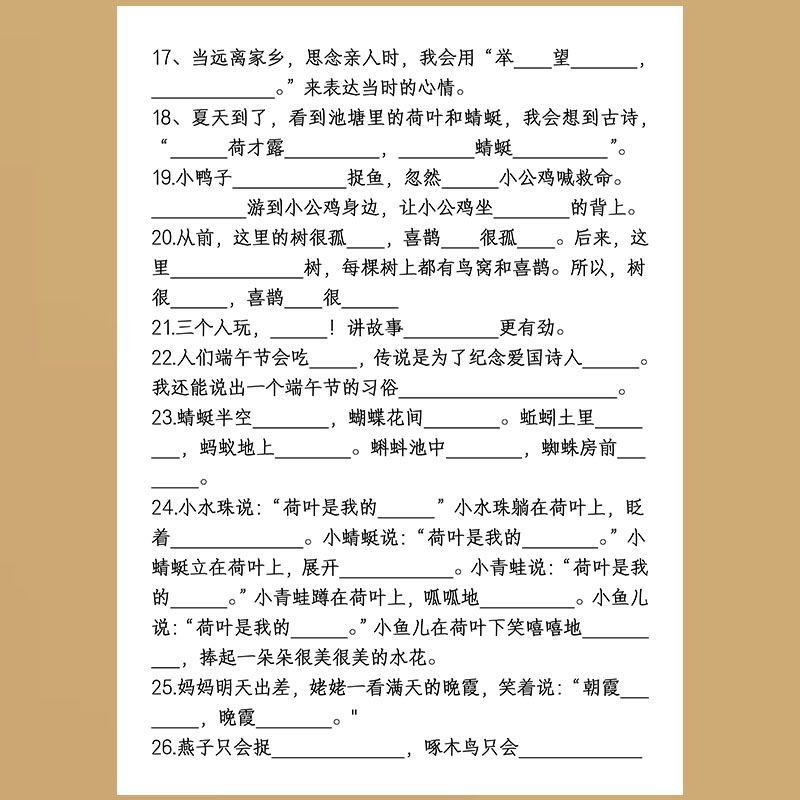 17、当远离家乡，思念亲人时，我会用“举____望_______，
_____________。”来表达当时的心情。
18、夏天到了，看到池塘里的荷叶和蜻蜓，我会想到古诗，
“______荷才露__________，________蜻蜓__________”。
19.小鸭子____________捉鱼，忽然______小公鸡喊救命。
__________游到小公鸡身边，让小公鸡坐________的背上。
20.从前，这里的树很孤____，喜鹊____很孤____。后来，这
里______________树，每棵树上都有鸟窝和喜鹊。所以，树
很______，喜鹊____很______
21.三个人玩，______！讲故事__________更有劲。
22.人们端午节会吃_____，传说是为了纪念爱国诗人______。
我还能说出一个端午节的习俗_______________________。
23.蜻蜓半空________，蝴蝶花间________。蚯蚓土里_____
___，蚂蚁地上________。蝌蚪池中________，蜘蛛房前___
_____。
24.小水珠说：“荷叶是我的______”小水珠躺在荷叶上，眨
着______________。小蜻蜓说：“荷叶是我的________。”小
蜻蜓立在荷叶上，展开____________。小青蛙说：“荷叶是我
的______。”小青蛙蹲在荷叶上，呱呱地__________。小鱼儿
说：“荷叶是我的______。”小鱼儿在荷叶下笑嘻嘻地_______
___，捧起一朵朵很美很美的水花。
25.妈妈明天出差，姥姥一看满天的晚霞，笑着说：“朝霞___
_____，晚霞________。"
26.燕子只会捉______________，啄木鸟只会_____________